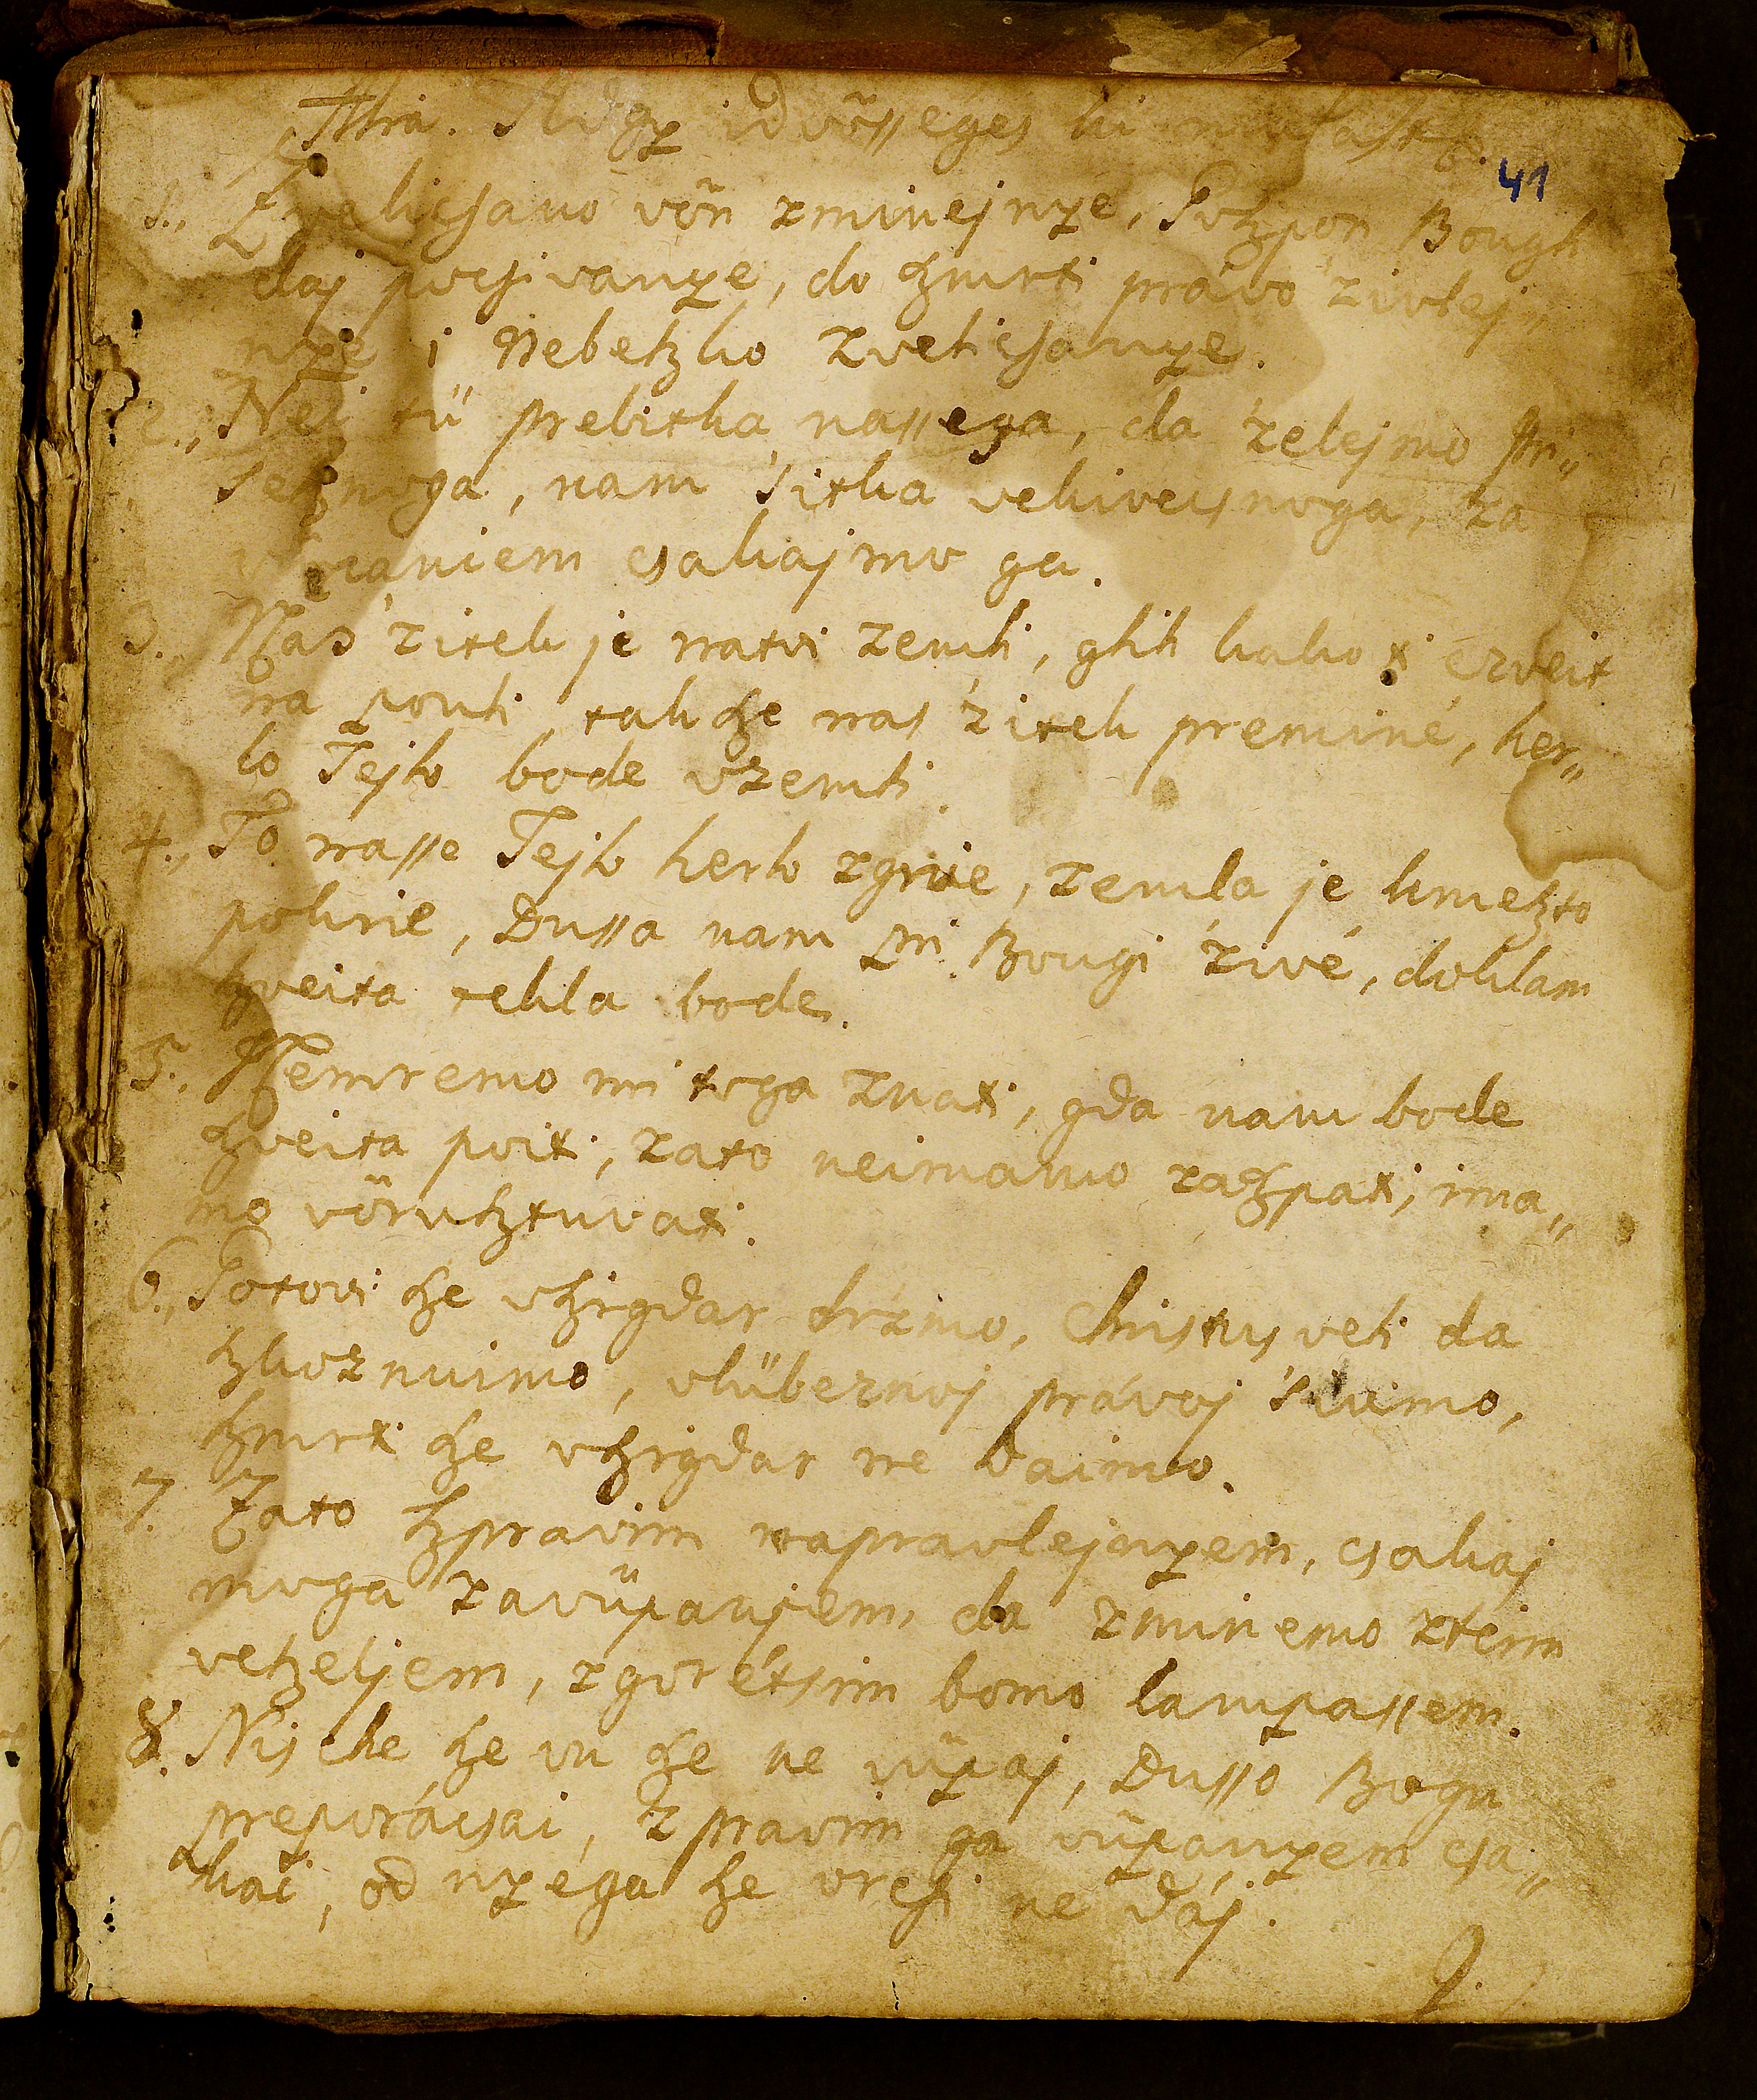 Nra. Adgy idvösseges ki mulast
41
1., Zvelicsano vön zminejnye, Goszpon Bough
daj pocsivanye, do szmrti právo 'zivlej„
nye i Nebeszko zvelicsanye.
2., Nei tü prebitka nassega, da 'zelejmo Pri„
sesznoga, nam 'sitka vekivecsnoga, za
vüpaniem csakajmo ga.
3., Nas 'zitek je natoi zemli, glih kako ti czveit
na pouli, tak sze nas 'zitek premine, ker„
ko Tejlo bode vzemli.
4., To nasse Tejlo kerko zgnie, zemla je kmeszto
pokrie, Dussa nam pri Bougi 'zivé, dokklam
szveita tekla bode.
5., Nemremo mi toga znati, gda nam bode
szveita poiti, zato neimamo zaszpati, ima„
mo vörusztuvati.
6., Gotovi sze vszigdar dr'zmo, Christus veli da
szkoznuimo, vlübeznoj právoj 'sivimo,
szmrti sze vszigdar ne baimo.
7. Zato szpravim napravlejnyem, csakaj
moga zavüpanjem, da zminemo zteim
veszeljem, zgorétsim bomo lampassem.
8. Nis che sze vu sze ne vüpaj, Dusso Bogu
preporácsai, zpravim ga vüpanyem csa„
kai, od nyéga sze vrcsi ne dáj.